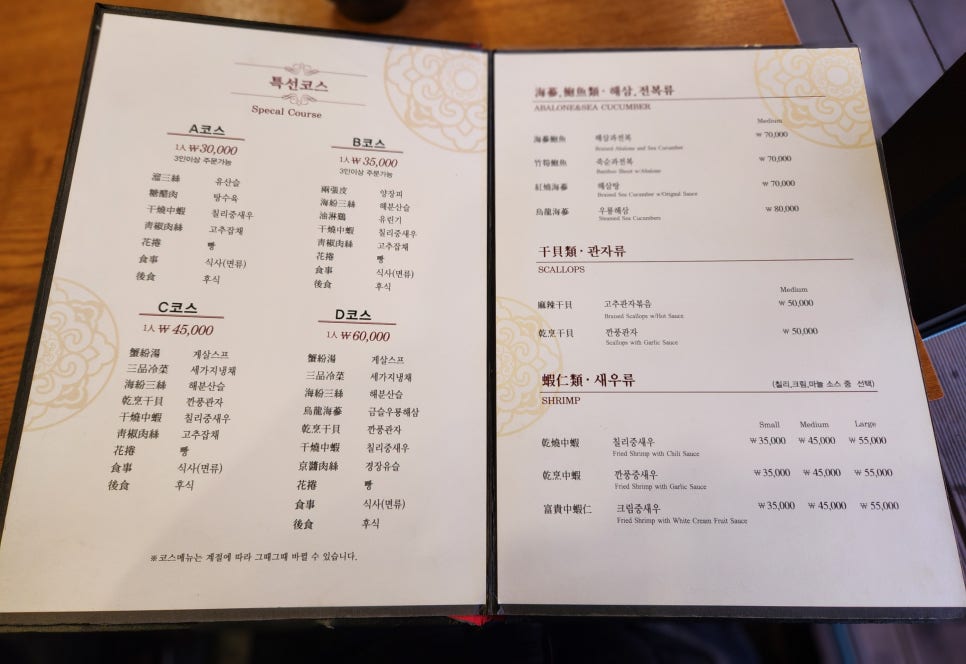 특선코스
Specal Course
A코스
1人 ₩30,000
3인이상 주문가능
溜三絲 유산슬
糖醋肉 탕수육
干燒中蝦 칠리중새우
靑椒肉絲 고추잡채
花捲 빵
食事 식사(면류)
後食 후식
B코스
1人 ₩35,000
3인이상 주문가능
兩張皮 양장피
海紛三絲 해분산슬
油淋鷄 유린기
干燒中蝦 칠리중새우
靑椒肉絲 고추잡채
花捲 빵
食事 식사(면류)
後食 후식
C코스
1人 ₩45,000
蟹紛湯 게살스프
三品冷菜 세가지냉채
海紛三絲 해분산슬
乾烹干貝 깐풍관자
干燒中蝦 칠리중새우
靑椒肉絲 고추잡채
花捲 빵
食事 식사(면류)
後食 후식
D코스
1人 ₩60,000
蟹紛湯 게살스프
三品冷菜 세가지냉채
海紛三絲 해분산슬
烏龍海蔘 금슬우룡해삼
乾烹干貝 깐풍관자
干燒中蝦 칠리중새우
京醬肉絲 경장유슬
花捲 빵
食事 식사(면류)
後食 후식
※코스메뉴는 계절에 따라 그때그때 바뀔 수 있습니다.
海蔘,鮑魚類·해삼,전복류
ABALONE&SEA CUCUMBER
Medium
海蔘鮑魚 해삼과전복 ₩70,000
Braised Abalone and Sea Cucumber
竹筍鮑魚 죽순과전복 ₩70,000
Bamboo Shoot w/Abalone
紅燒海蔘 해삼탕 ₩70,000
Braised Sea Cucumber w/Original Sauce
烏龍海蔘 우룡해삼 ₩80,000
Steamed Sea Cucumbers
干貝類·관자류
SCALLOPS
Medium
麻辣干貝 고추관자볶음 ₩50,000
Braised Scallops w/Hot Sauce
乾烹干貝 깐풍관자 ₩50,000
Scallops with Garlic Sauce
蝦仁類·새우류 (칠리,크림,마늘 소스 중 선택)
SHRIMP
Small Medium Large
乾燒中蝦 칠리중새우 ₩35,000 ₩45,000 ₩55,000
Fried Shrimp with Chili Sauce
乾烹中蝦 깐풍중새우 ₩35,000 ₩45,000 ₩55,000
Fried Shrimp with Garlic Sauce
富貴中蝦仁 크림중새우 ₩35,000 ₩45,000 ₩55,000
Fried Shrimp with White Cream Fruit Sauce